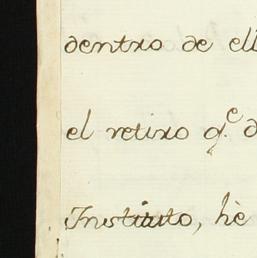 dentro de ell
el retiro q.e d
Instituto, hè